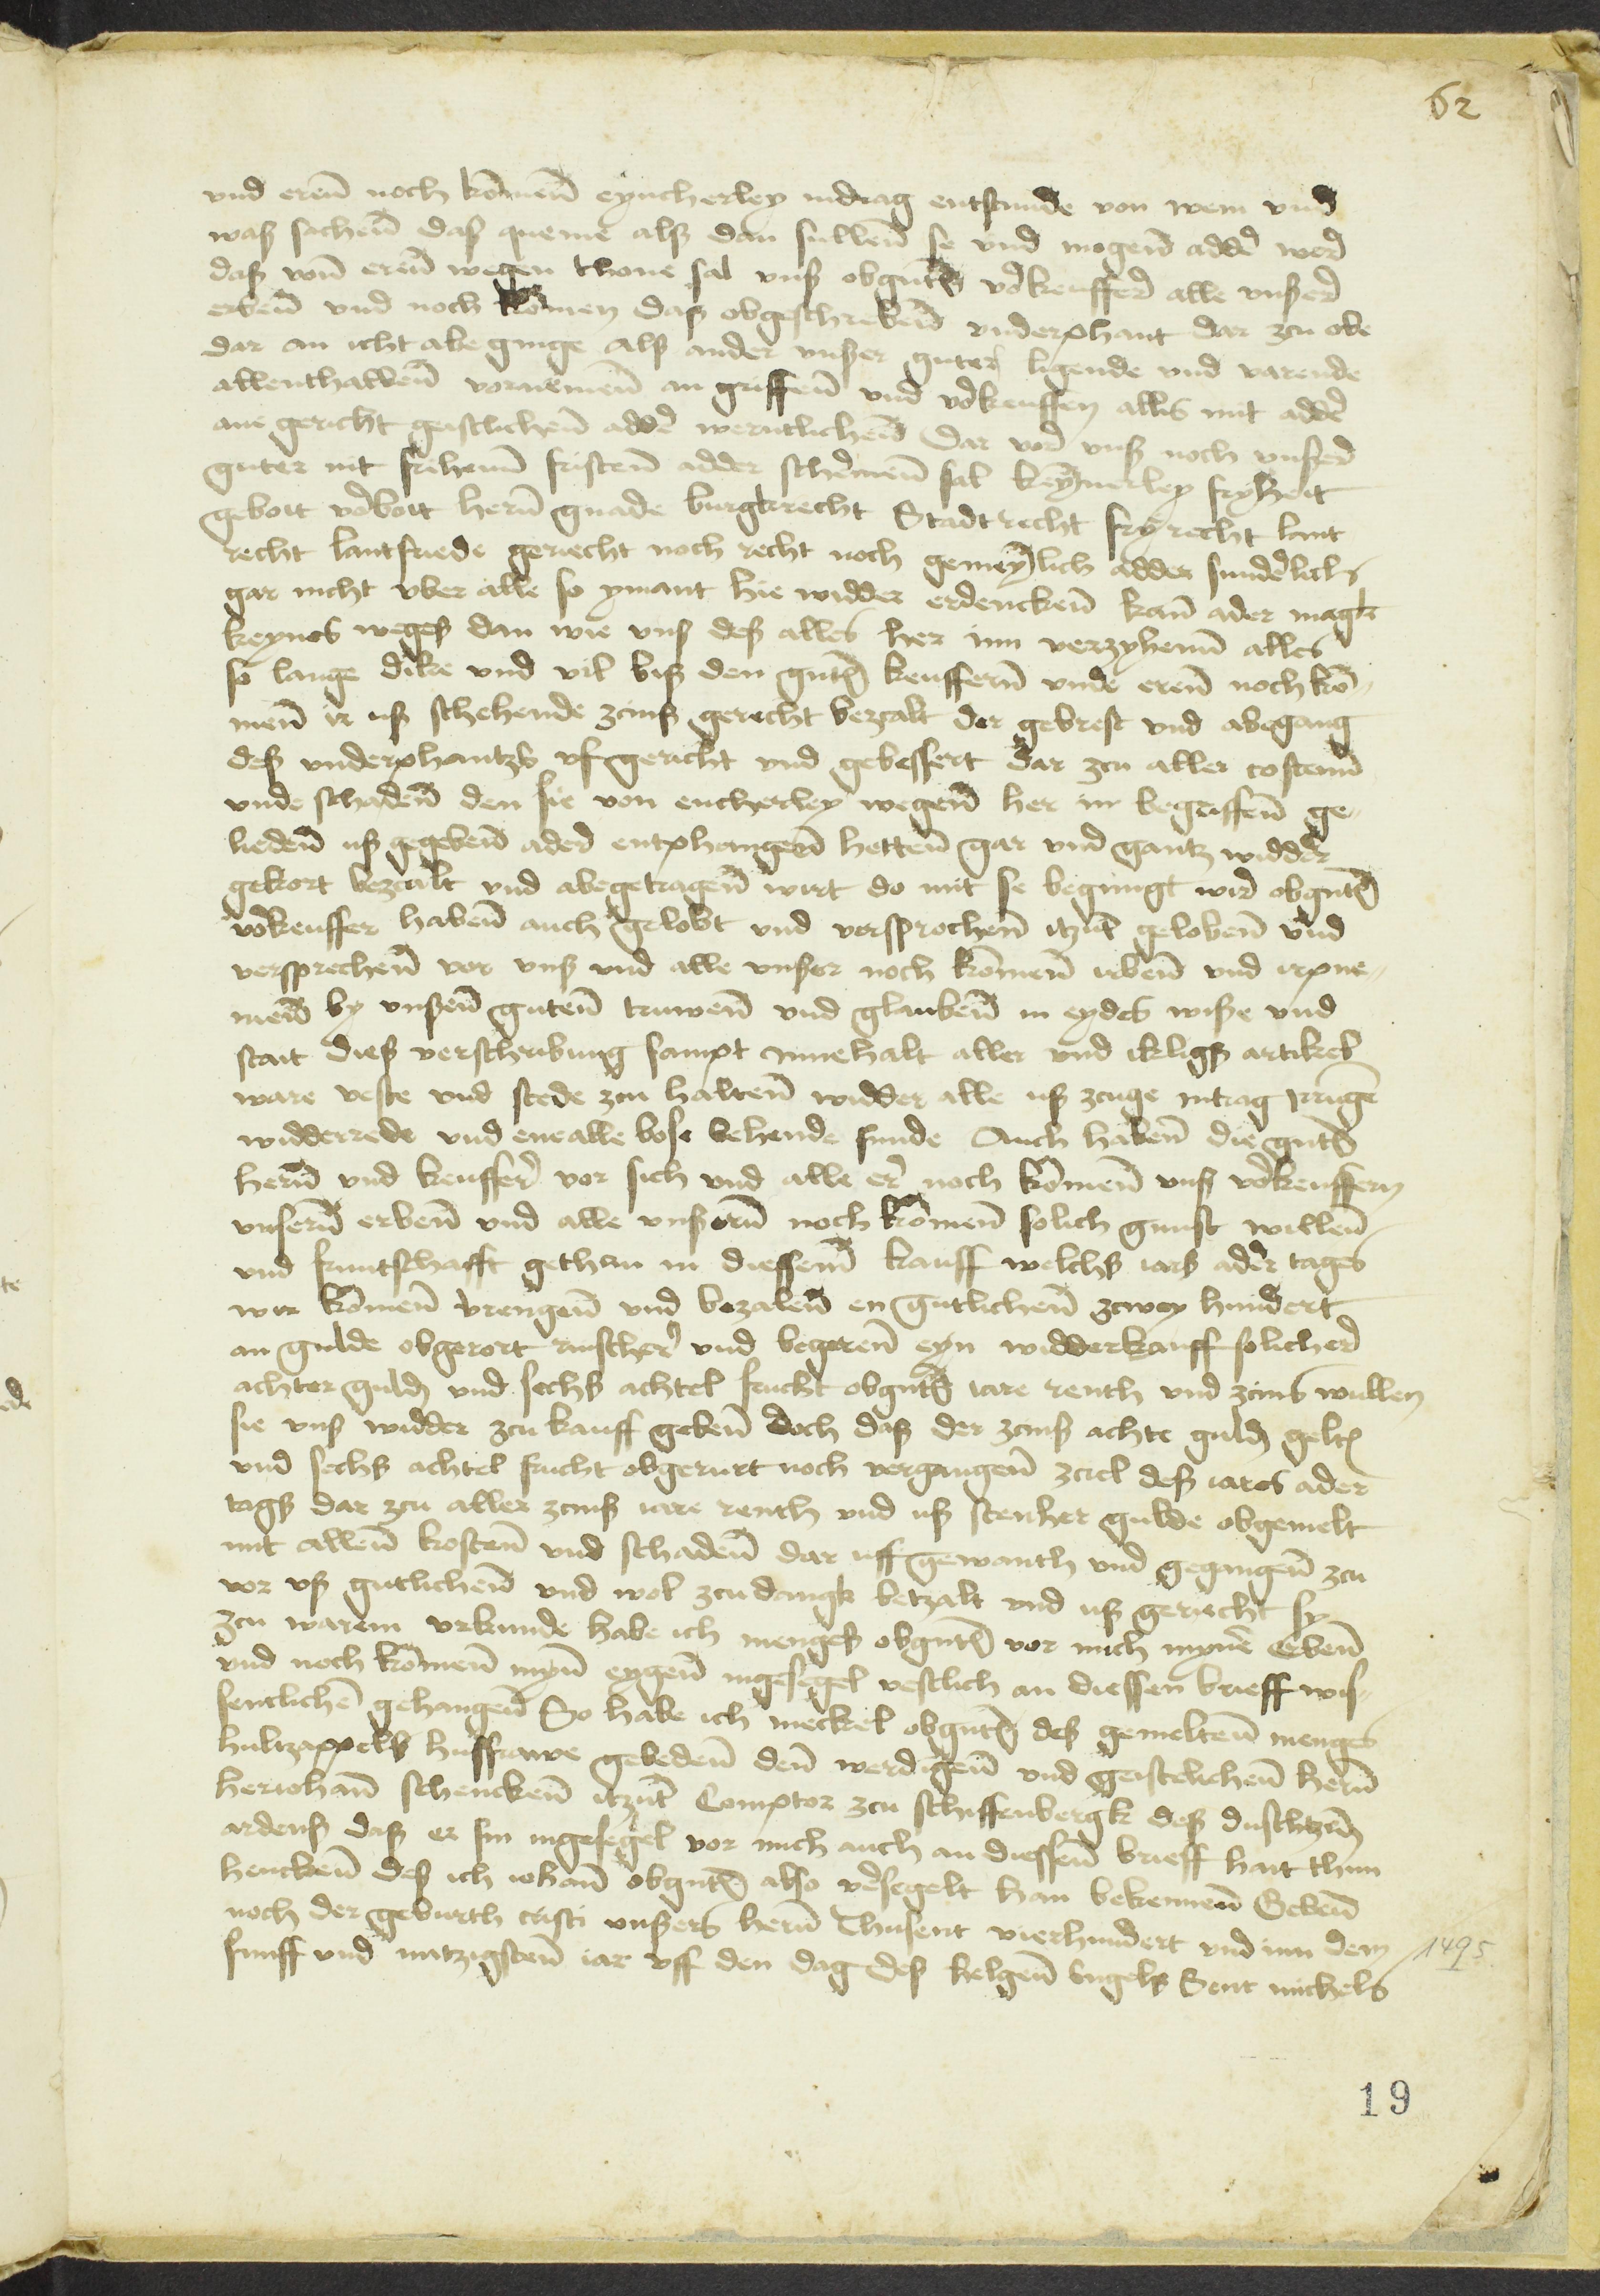 62
vnd eren̄ noch kōmen̄ eyncherley indrag entstunde von wem vnd
waß sachen̄ daß queme alß dan sullen̄ se vnd mogen̄ adder wer
daß von̄ eren̄ wegen thone sal vnß obgnt̄ verkeuffer alle vnßer
erben̄ vnd noch kōmen daß obgeschreben̄ vnderphant dar zcu obe
dar an icht abe ginge alß ander vnßer guter ligende vnd varende
allenthalben̄ vornemen̄ an griffen̄ vnd verkeuffen alles mit adder
ane gericht geistlichen̄ adder werntlichen̄ Dar vor vnß noch vnßer
guter nit frihenn̄ fristen̄ adder schermen̄ sal keynerley fryheit
geboit verboit hern̄ gnade burgkrecht Stadtrecht fryrecht lant
recht lantfriede geriecht noch recht noch gemeynlich adder sunderlich
gar nicht vber alle so ymant hie widder erdencken̄ kan̄ ader magk
keynes weges dan wir vnß deß alles her inn verzyhenn̄ alles
so lange dike vnd vil biß den gnt̄ keuffern̄ vnde eren̄ noch kō-
men̄ ir uß schehende zcinß gerecht bezcalt der gebrest vnd abegang
deß vnderphantzs vfgericht vnd gebessert dar zcu aller costenn̄
vnde schaden̄ den sie von encherley wegen̄ her in begriffen̄ ge-
lieden̄ uß gegeben̄ ader entphangen̄ hetten̄ gar vnd gantz widder
gekort bezcalt vnd abegetragen̄ wirt do mit se begnugt wir obgnt̄
verkeuffer haben̄ auch gelobt vnd versprochen̄ itzūt geloben̄ vnd
versprechen̄ vor vnß vnd alle vnßer noch kōmen̄ erben̄ vnd irpne-
men̄ by vnßen̄ guten̄ truwen̄ vnd glauben̄ in eydes wiße vnd
stait dieß verschribung sampt innehalt aller vnd ikligß artikel
ware veste vnd stede zcu halten̄ widder alle uß zcuge intrag irrūge
widderrede vnd ene alle bose behende funde Auch haben̄ die gnt̄
hern̄ vnd keuffer vor sich vnd alle er noch kōmen̄ vnß verkeuffern
vnsern̄ erben̄ vnd alle vnßern̄ noch kōmen̄ solich gunst willen̄
vnd fruntschafft gethan in diessem̄ kauff welchß iars ader tages
wir kōmen̄ brengen̄ vnd bezalen̄ en gutlichen̄ zcwey hundert
an gulde obgerort rinscher vnd begeren̄ eyn widderkauff solicher
achter guld vnd sechß achtel frucht obgnt̄ iare renth vnd zcins wullen
sie vnß widder zcu kauff geben̄ doch daß der zcinß achte guld gelt
vnd sechß achtel frucht obgerurt noch vergangen̄ zciel deß iares ader
tagß dar zcu aller zcinß iare renth vnd uß stenher gulde obgemelt
mit allen̄ kosten̄ vnd schaden̄ dar uff gewanth vnd gegangen̄ zcu
vor vß gutlichen̄ vnd wol zcu dangk betzalt vnd uß gericht sy
Zcu warem vrkunde habe ich menges obgnt̄ vor mich myner Erben̄
vnd noch kōmen̄ myn̄ eygen̄ ingesegel vestlich an diessen brieff wis-
sentlichē gehangen̄ So habe ich meckel obgnt̄ des gemelten̄ menges
hultzappelß hußfrawe gebeden̄ den̄ werdigen̄ vnd geistlichen̄ hern̄
heriohan̄ schencken̄ itzūt Comptor zcu schiffenbergk deß duschtzun̄
ordenß daß er sin ingesegel vor mich auch an diessen̄ brieff hait thun
hencken̄ deß ich iohan̄ obgnt̄ also versegelt han bekennen̄ Geben̄
noch der geburth cristi vnßers hern̄ Thusent vierhundert vnd inn dem
funff vnd nūtzigsten̄ iar vff den dag deß helgen̄ Engels Sent michels
1495
19